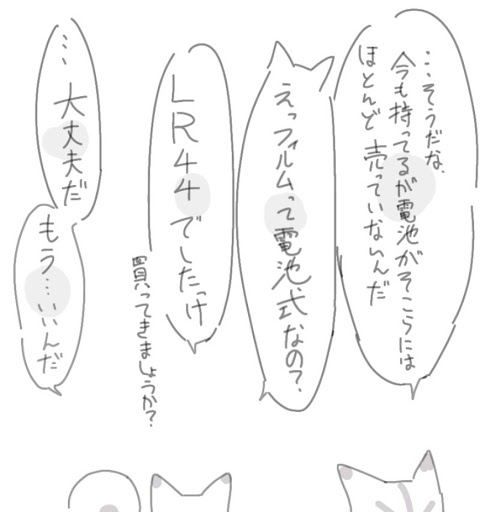 …そうだな、
今も持ってるが電池がそこらには
ほとんど売っていないんだ
えっフィルムって電池式なの?
LR44でしたっけ
買ってきましょうか?
…大丈夫だ
もう…いいんだ